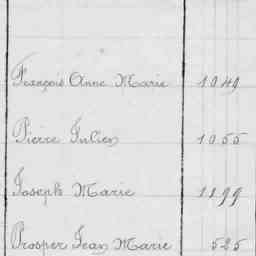 François Anne Marie 1049
Pierre Julien 1055
Joseph Marie 1199
Prosper Jean Marie 525